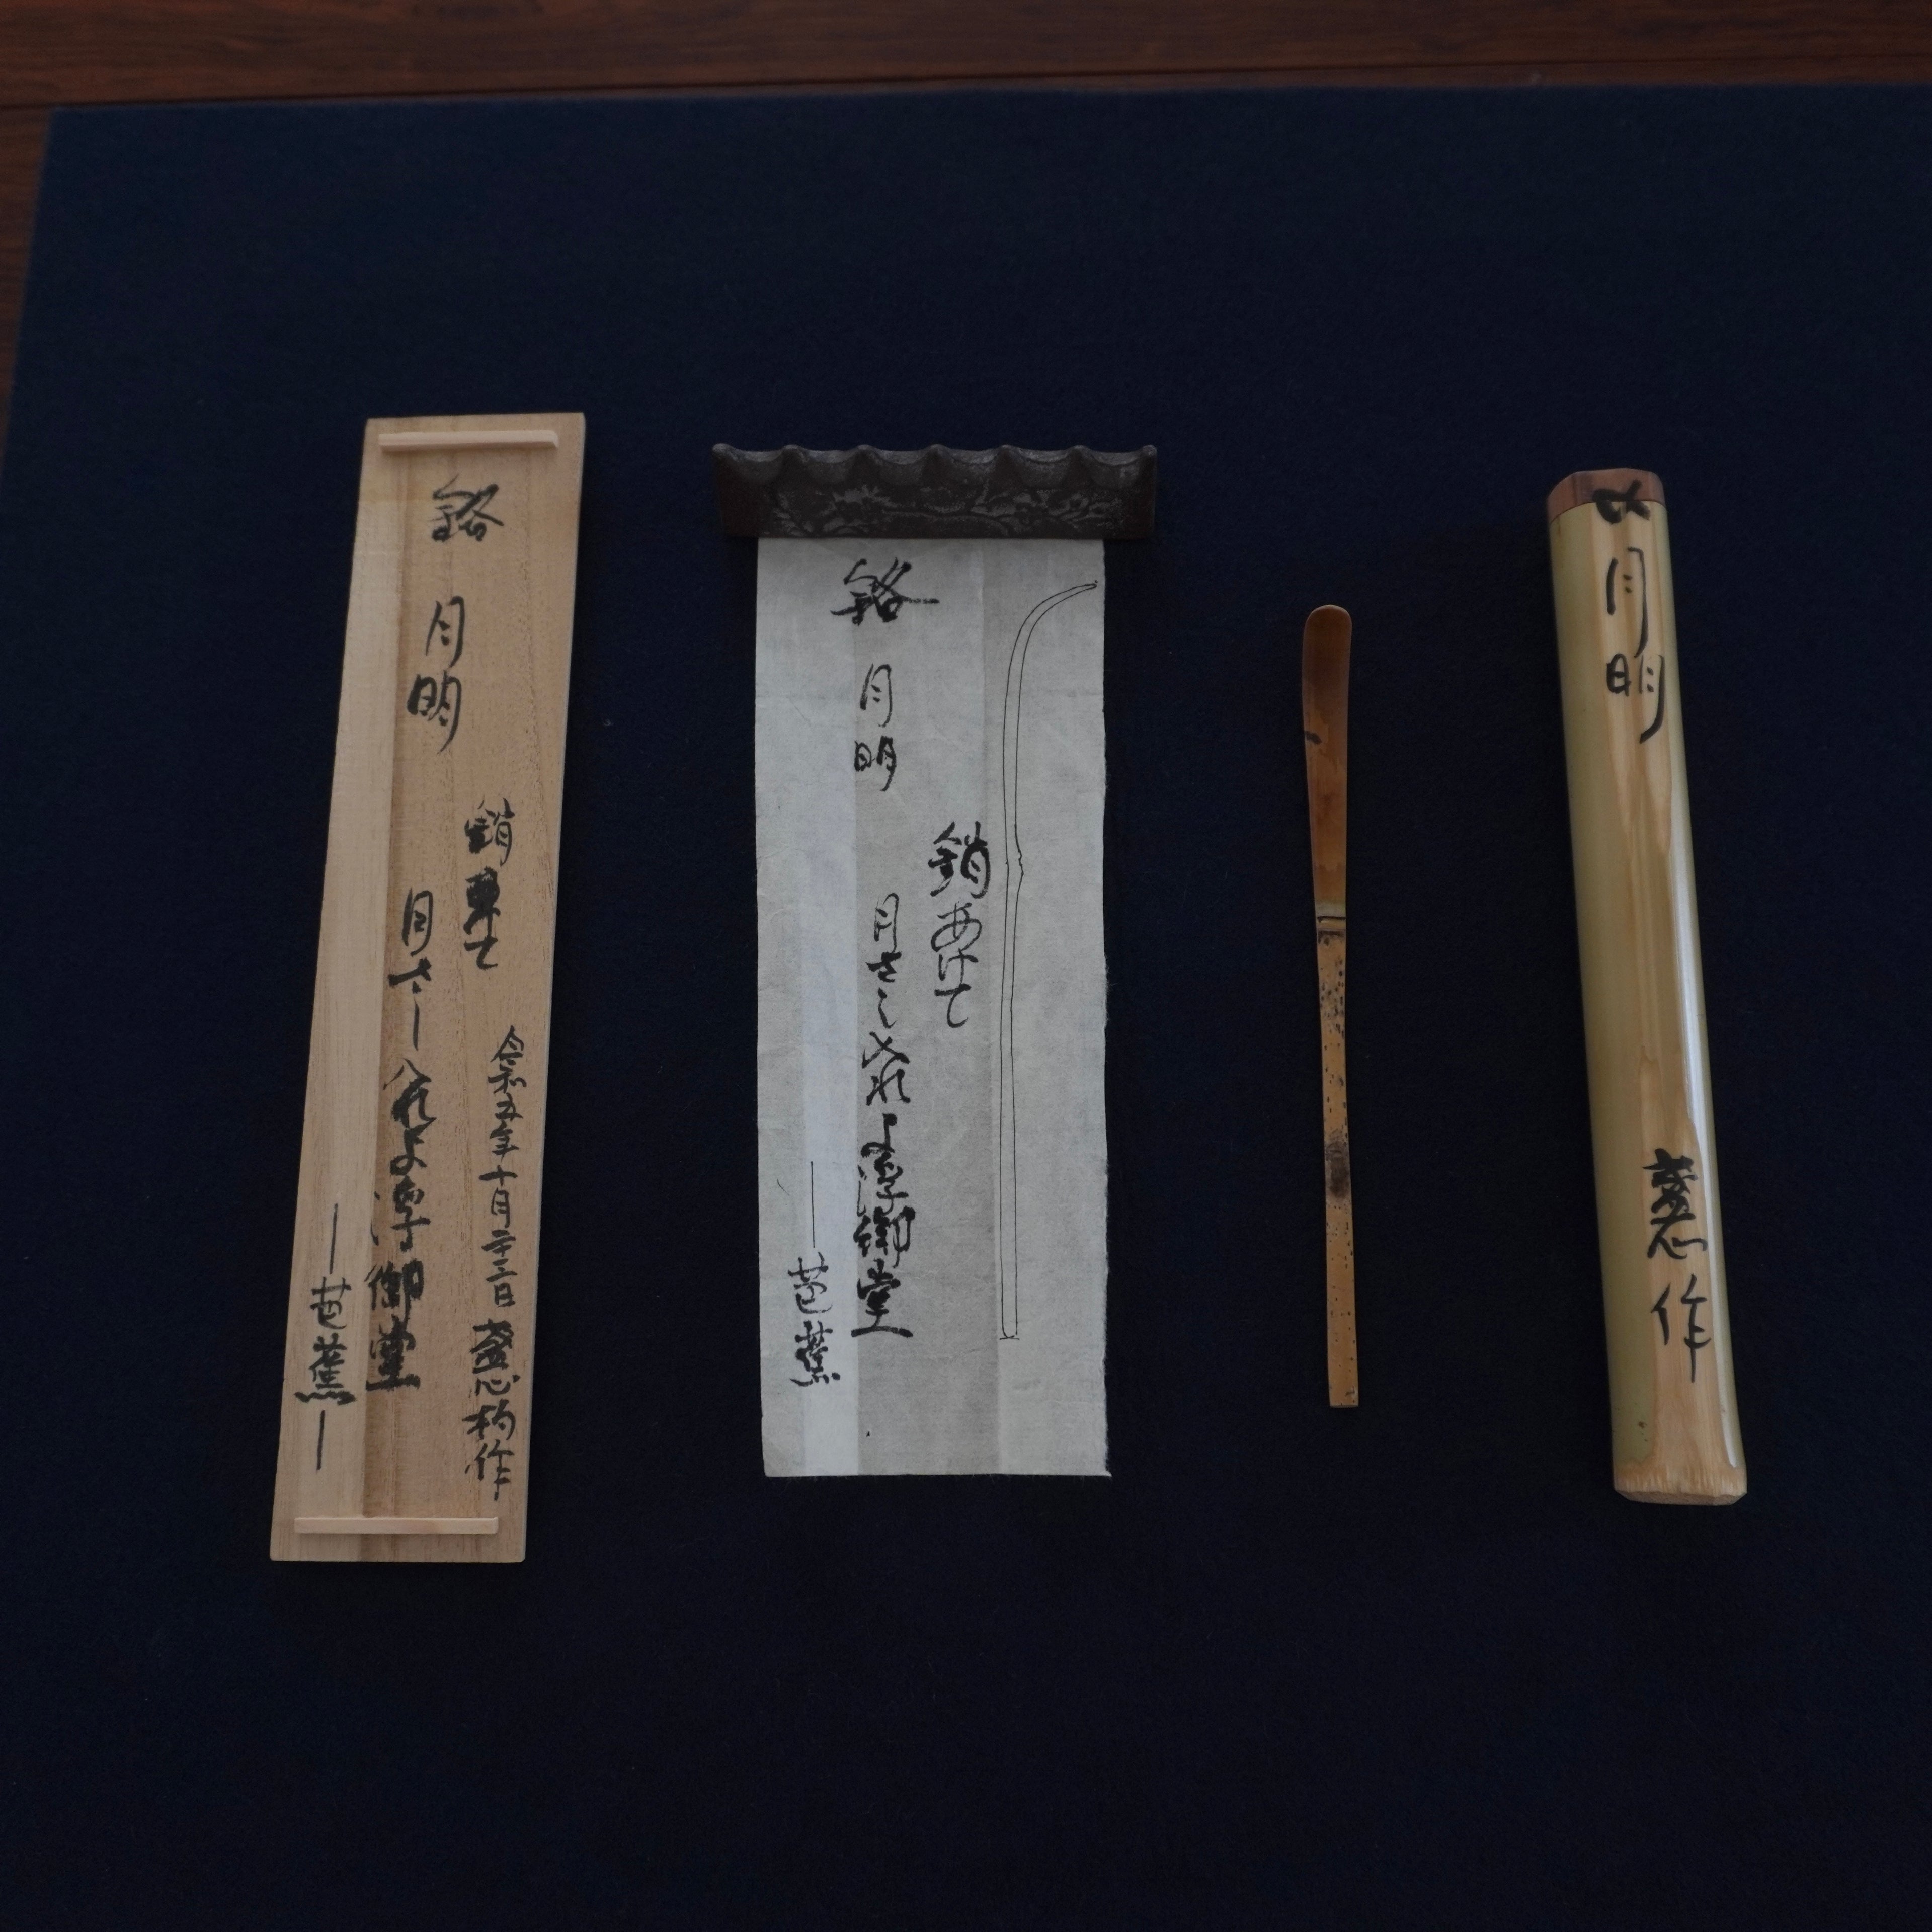 銘 月明
鎖 て
月さし入れよ浮御堂
―芭蕉―
令和五年十月二十三日 心 杓作
銘 月明
鎖あけて
月さし入れよ浮御堂
―芭蕉
〆
月明
作